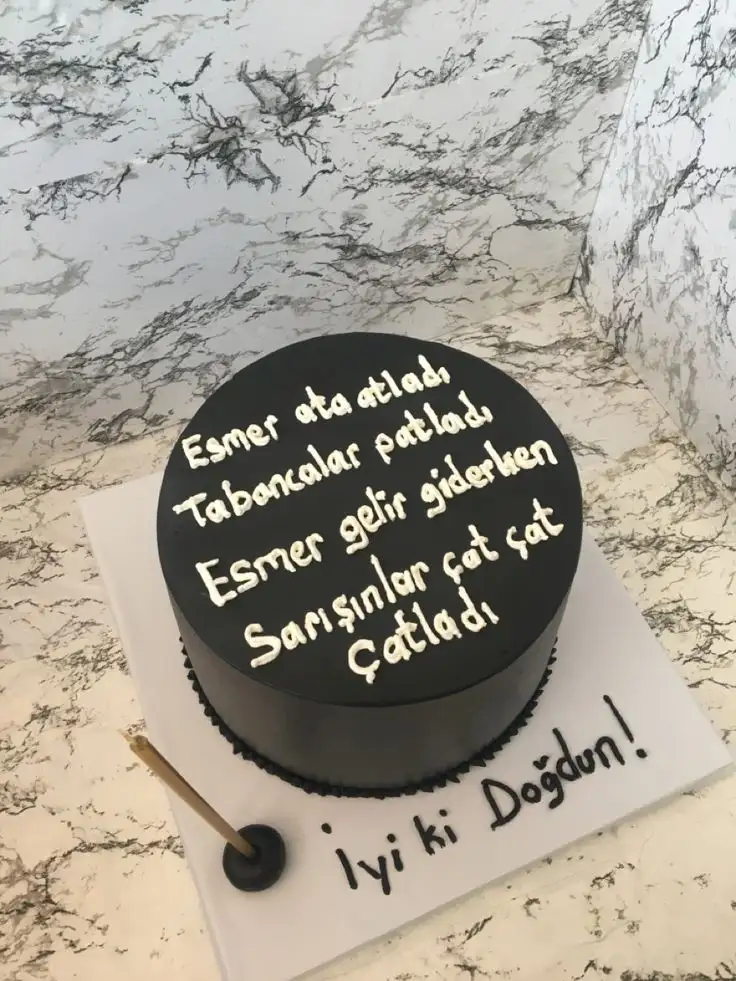 Esmer ata atladı
Tabancalar patladı
Esmer gelir giderken
Sarışınlar çat çat
Çatladı
İyi ki Doğdun!